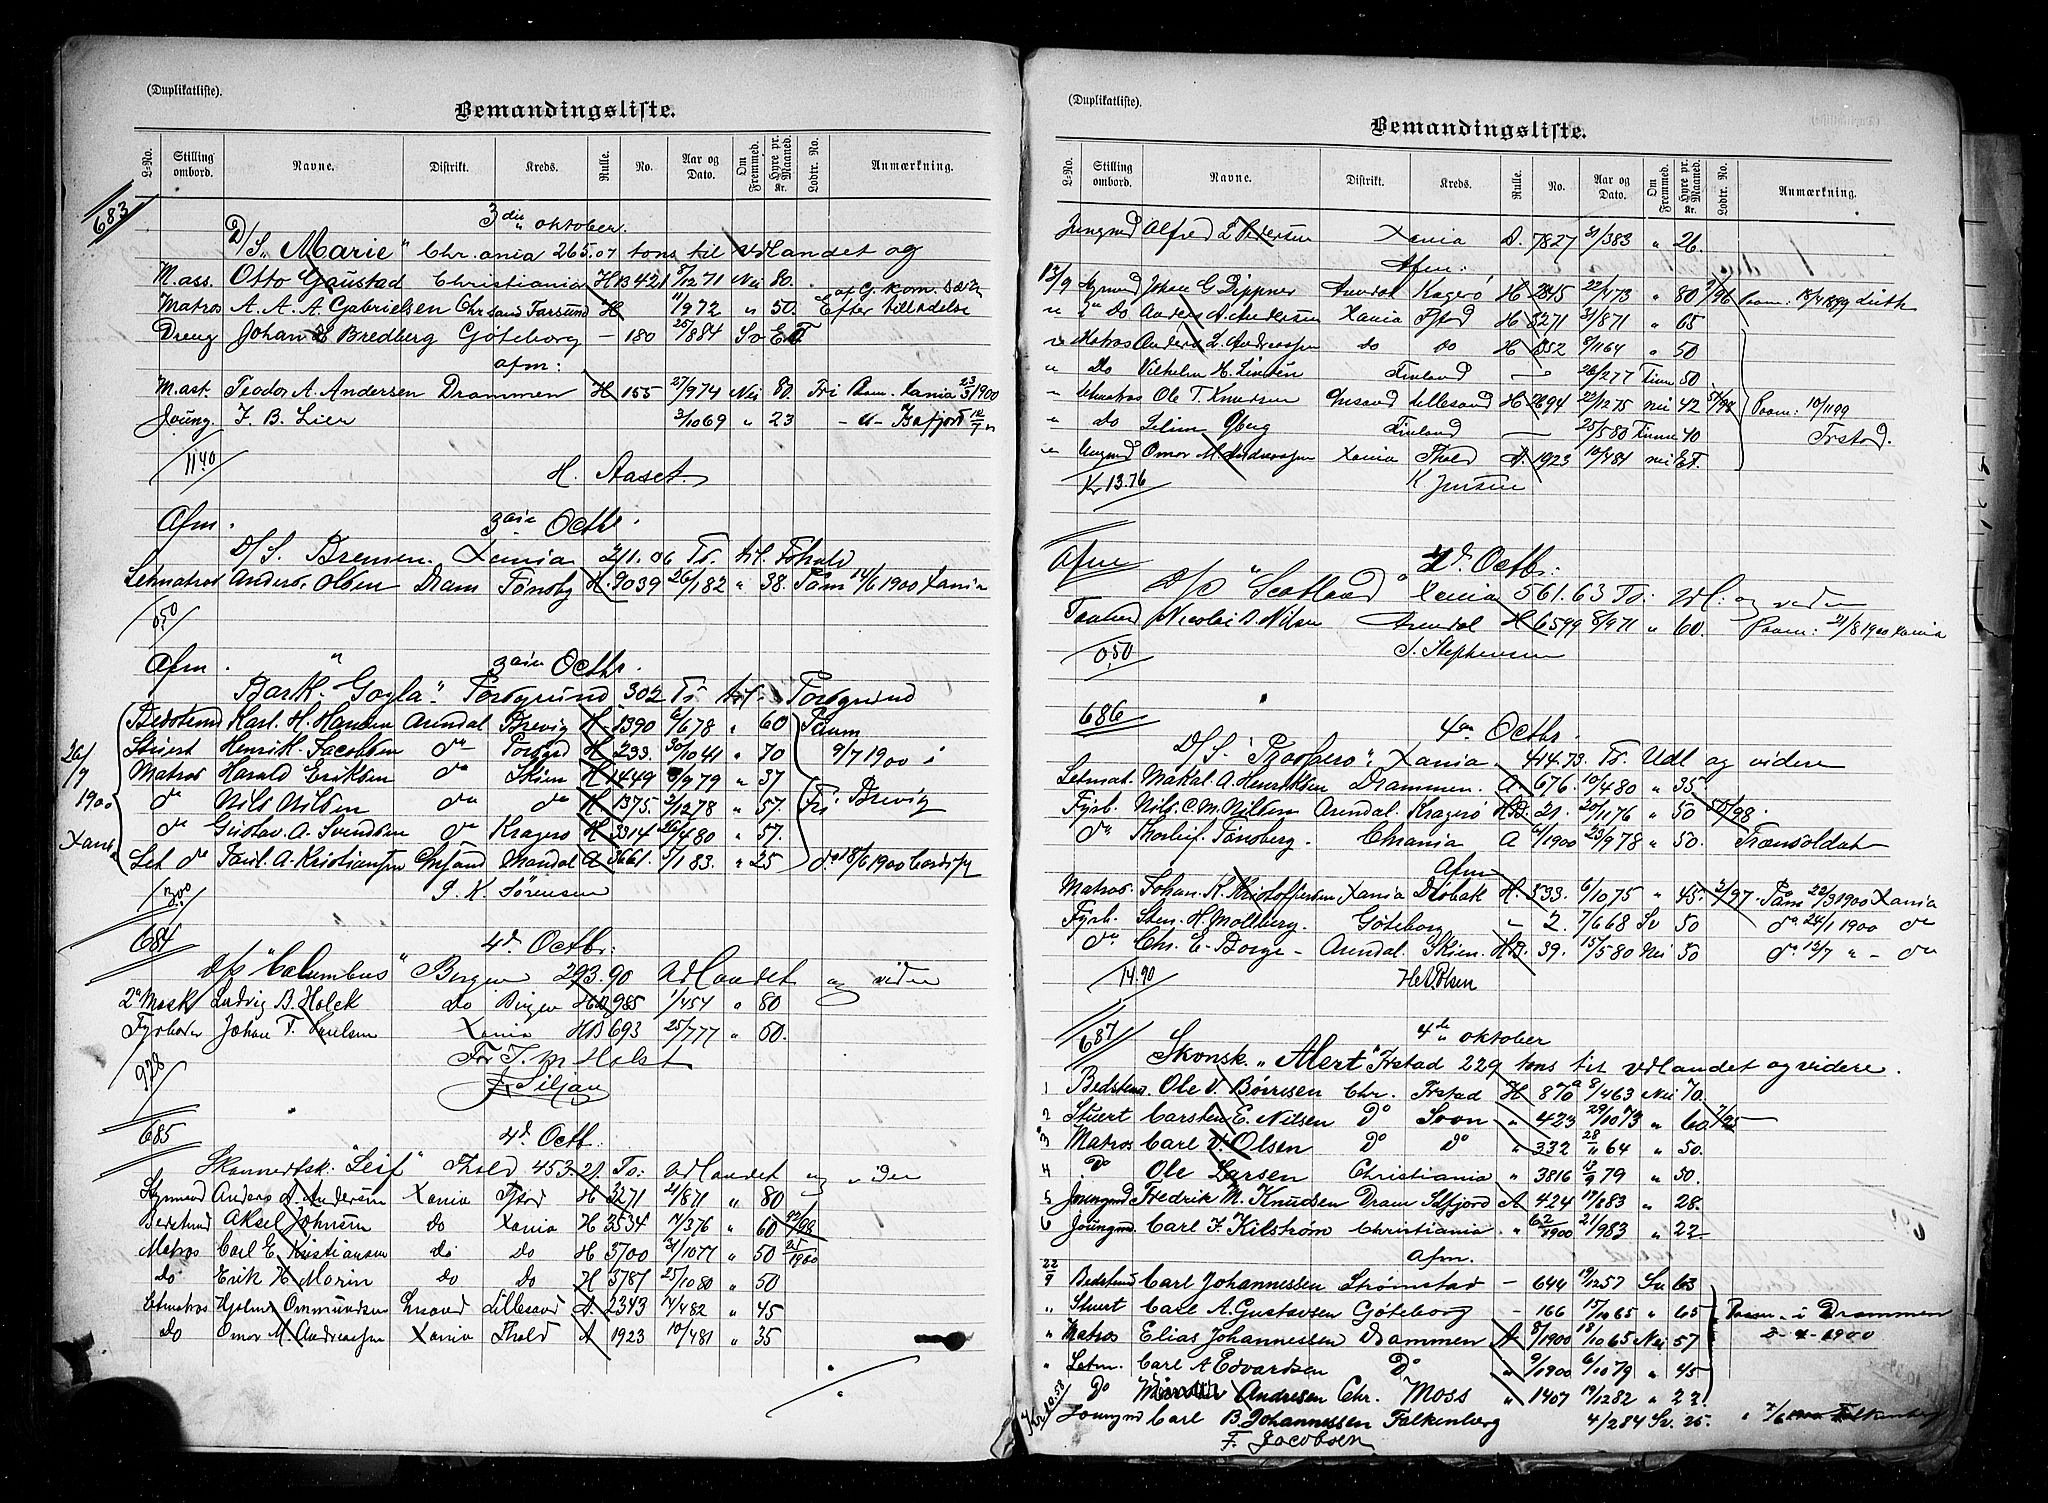 (Duplikatliste).
Bemandingsliste.
L-No. Stilling ombord. Navne. Distrikt. Kreds. Rulle. No. Aar og Dato. Om Fremmed. Hyre pr. Maaned. Kr. Lodtr. No. Anmærkning.
683
3die oktober.
D/S. "Marie" Chr.ania 265.07 tons til udlandet og
M.ass. Otto Gaustad Christiania H 13421 8/1271 Nei 80.
Matros A. A. A Gabrielsen Chr sand Farsund H 11/972 " 50. Efter tilladelse
Dreng Johan Bredberg Göteborg - 180 25/884 Sv E.T.
afm:
M.ast. Teodor A. Andersen Drammen H 155 27/974 Nei 80. Fri Paam. Xania 23/3 1900
Joung. J. B. Lier 3/1069 " 23 - " - Bafjord 12/7 "
11.40
H. Aaset.
Afm. 3die Octbr.
D/S. Bremen. Xania 211.06 Ts. til. Fshald
Letmatros Anders. Olsen Dram Tönsby H. 9039 26/182 " 38. Paam 14/6 1900 Xania
0.50
Afm. " 3die Octbr.
Bark. "Gogla". Porsgrund. 302 Ts. til. Porsgrund
26/7 1900 Xania
Bedstemd Karl. H. Hansen Arendal Brevig H. 1390 6/678 " 60 Paam
Stuert Henrik. Jacobsen do Porsgrd H 233. 30/1041 " 70 9/7 1900 i
Matros Harald Eriksen do Skien H 1449 9/979 " 37
do Nils Nilsen do do H 1375. 2/1278 " 57. Brevig
do Gustav. A. Svendsen do Kragerø H 3314 26/480 " 57.
Let do Farl. A. Kristiansen Chrsand Mandal A 3661. 5/183. " 25 do 18/6 1900
3.00
P. K. Sørensen
684
4d Octbr:
D/S "Columbus" Bergen 293.90 Udlandet og videre
2d Mask Ludvig B. Holck do Bergen HB 985 1/454 " 80
Fyrbøder Johan F. Paulsen Xania HB 693 25/777 " 60.
9.28
For T. M Holst
Siljan
685
4d Octb.
Skonnertsk. "Leif" Fhald 453.21. Ts: Udlandet og videre
Styrmand Anders A. Andersen Xania Fstad H 3271 31/871 " 80
Bedstmd Aksel Johnsen do Xania H 3534 17/376 " 60 92/98
Matros Carl E Kristiansen do do H 3700 31/1077 " 50 25/1900
do Erik H Morin do do H 3787 25/1080 " 50
Letmatros Hjalmar Ommundsen Chrsand Lillesand A. 2343 14/482 " 45
do Omar M. Andreassen Xania Fhald A 1923 10/481 " 35
(Duplikatliste).
Bemandingsliste.
L-No. Stilling ombord. Navne. Distrikt. Kreds. Rulle. No. Aar og Dato. Om Fremmed. Hyre pr. Maaned. Kr. Lodtr. No. Anmærkning.
Jungmd Alfred L Pedersen Xania A. 7827 31/383 " 26.
Afm:
13/9 Styrmd Johan G. Dippner Arendal Kragerø H 2845 22/473 " 80 9/96 Paam: 18/4 1899 Leith
" do Anders A. Andersen Xania Fstad H 3271 31/871 " 65
" Matros Anders L. Andreassen do do H 352 8/1164 " 50
" Do Vilhelm H. Linden Finland 26/277 Finne 50.
" Letmatros Ole T. Knudsen Chrsand Lillesand H 2694 23/1275 nei 42 5/98 Paam: 10/11 99
" do Selim Öberg Finland 25/580 Finne 40 Frstad.
" Jungmd Omar M. Andreassen Xania Fhald A. 1923 10/481 nei E.T.
Kr 13.76
K Jensen
Afm 4d Octbr:
D/S "Scotland" Xania 561.63 Ts: Udl: og videre
Tømmermd Nicolai A. Nilsen Arendal H 6599 8/971 " 60. Paam: 21/8 1900 Xania
0.50
S. Stephensen
686
4de Octbr.
D/S. "Prospero" Xania. 414.73. Ts. Udl og videre
Letmat. Makal. A. Henriksen Drammen. A 676. 10/480 " 35.
Fyrb. Nils. C. M. Nilsen Arendal. Kragerø HB. 21. 20/1176 " 50 50/98.
do Thorleif. Tønsberg. Chrania A 61/1900 23/978 " 50. Trænsoldat
Afm
Matros. Johan. K. Kristoffersen Xania Drøbak H. 533. 6/1075 " 45. 2/97. Paam 22/3 1900 Xania
Fyrb. Sten. H. Mollberg. Göteborg " 2. 7/668 Sv 50 do 24/1 1900 do
do Chr. E. Borge - Arendal. Skien. HB. 39. 15/580 Nei 50 do 13/7 " - do
14.90
H. Olsen
687
4de oktober
Skonsk. "Alert" Frstad 229 tons til udlandet og videre.
1 Bedstem. Ole V. Børresen Chr. Frstad H 870 8/463 Nei 70.
2 Stuert Carsten E. Nilsen Do Soon " 423 29/1073 " 60 7/95
3 Matros Carl V. Olsen Do do " 332 28/11 64 " 50.
4 Do Ole Larsen Christiania " 3816 13/9 79 " 50.
5 Joungmd Fredrik M. Knudsen Dram A 424 17/683 " 28.
6 Joungmd. Carl F. Kilstrøm Christiania " 62/1900 21/983 " 22
afm.
22/9 Bedstmd Carl Johannessen Strömstad - 644 19/1257 Sv 63
" Stuert Carl A. Gustavsen Göteborg - 166 15/1065 " 65 Paam. i Drammen
" Matros Elias Johannessen Drammen A 8/1900 18/1065 Nei 57 1900
" Letm. Carl A Edvardsen Do " 9/1900 6/1079 " 45
" Do Andresen Chr. Moss " 1407 19/1282 " 22
Kr. 10.58
Joungmd Carl B. Johannessen Falkenberg 4/284 Sv. 25. " Falkenberg
F. Jacobsen